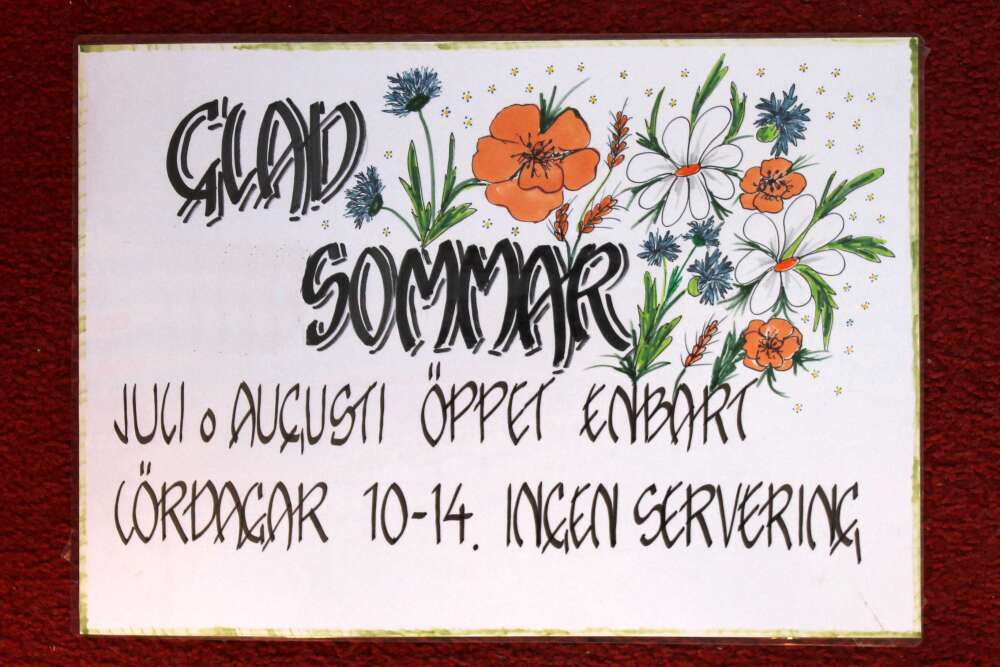 GLAD
SOMMAR
JULI o AUGUSTI ÖPPET ENBART
LÖRDAGAR 10-14. INGEN SERVERING